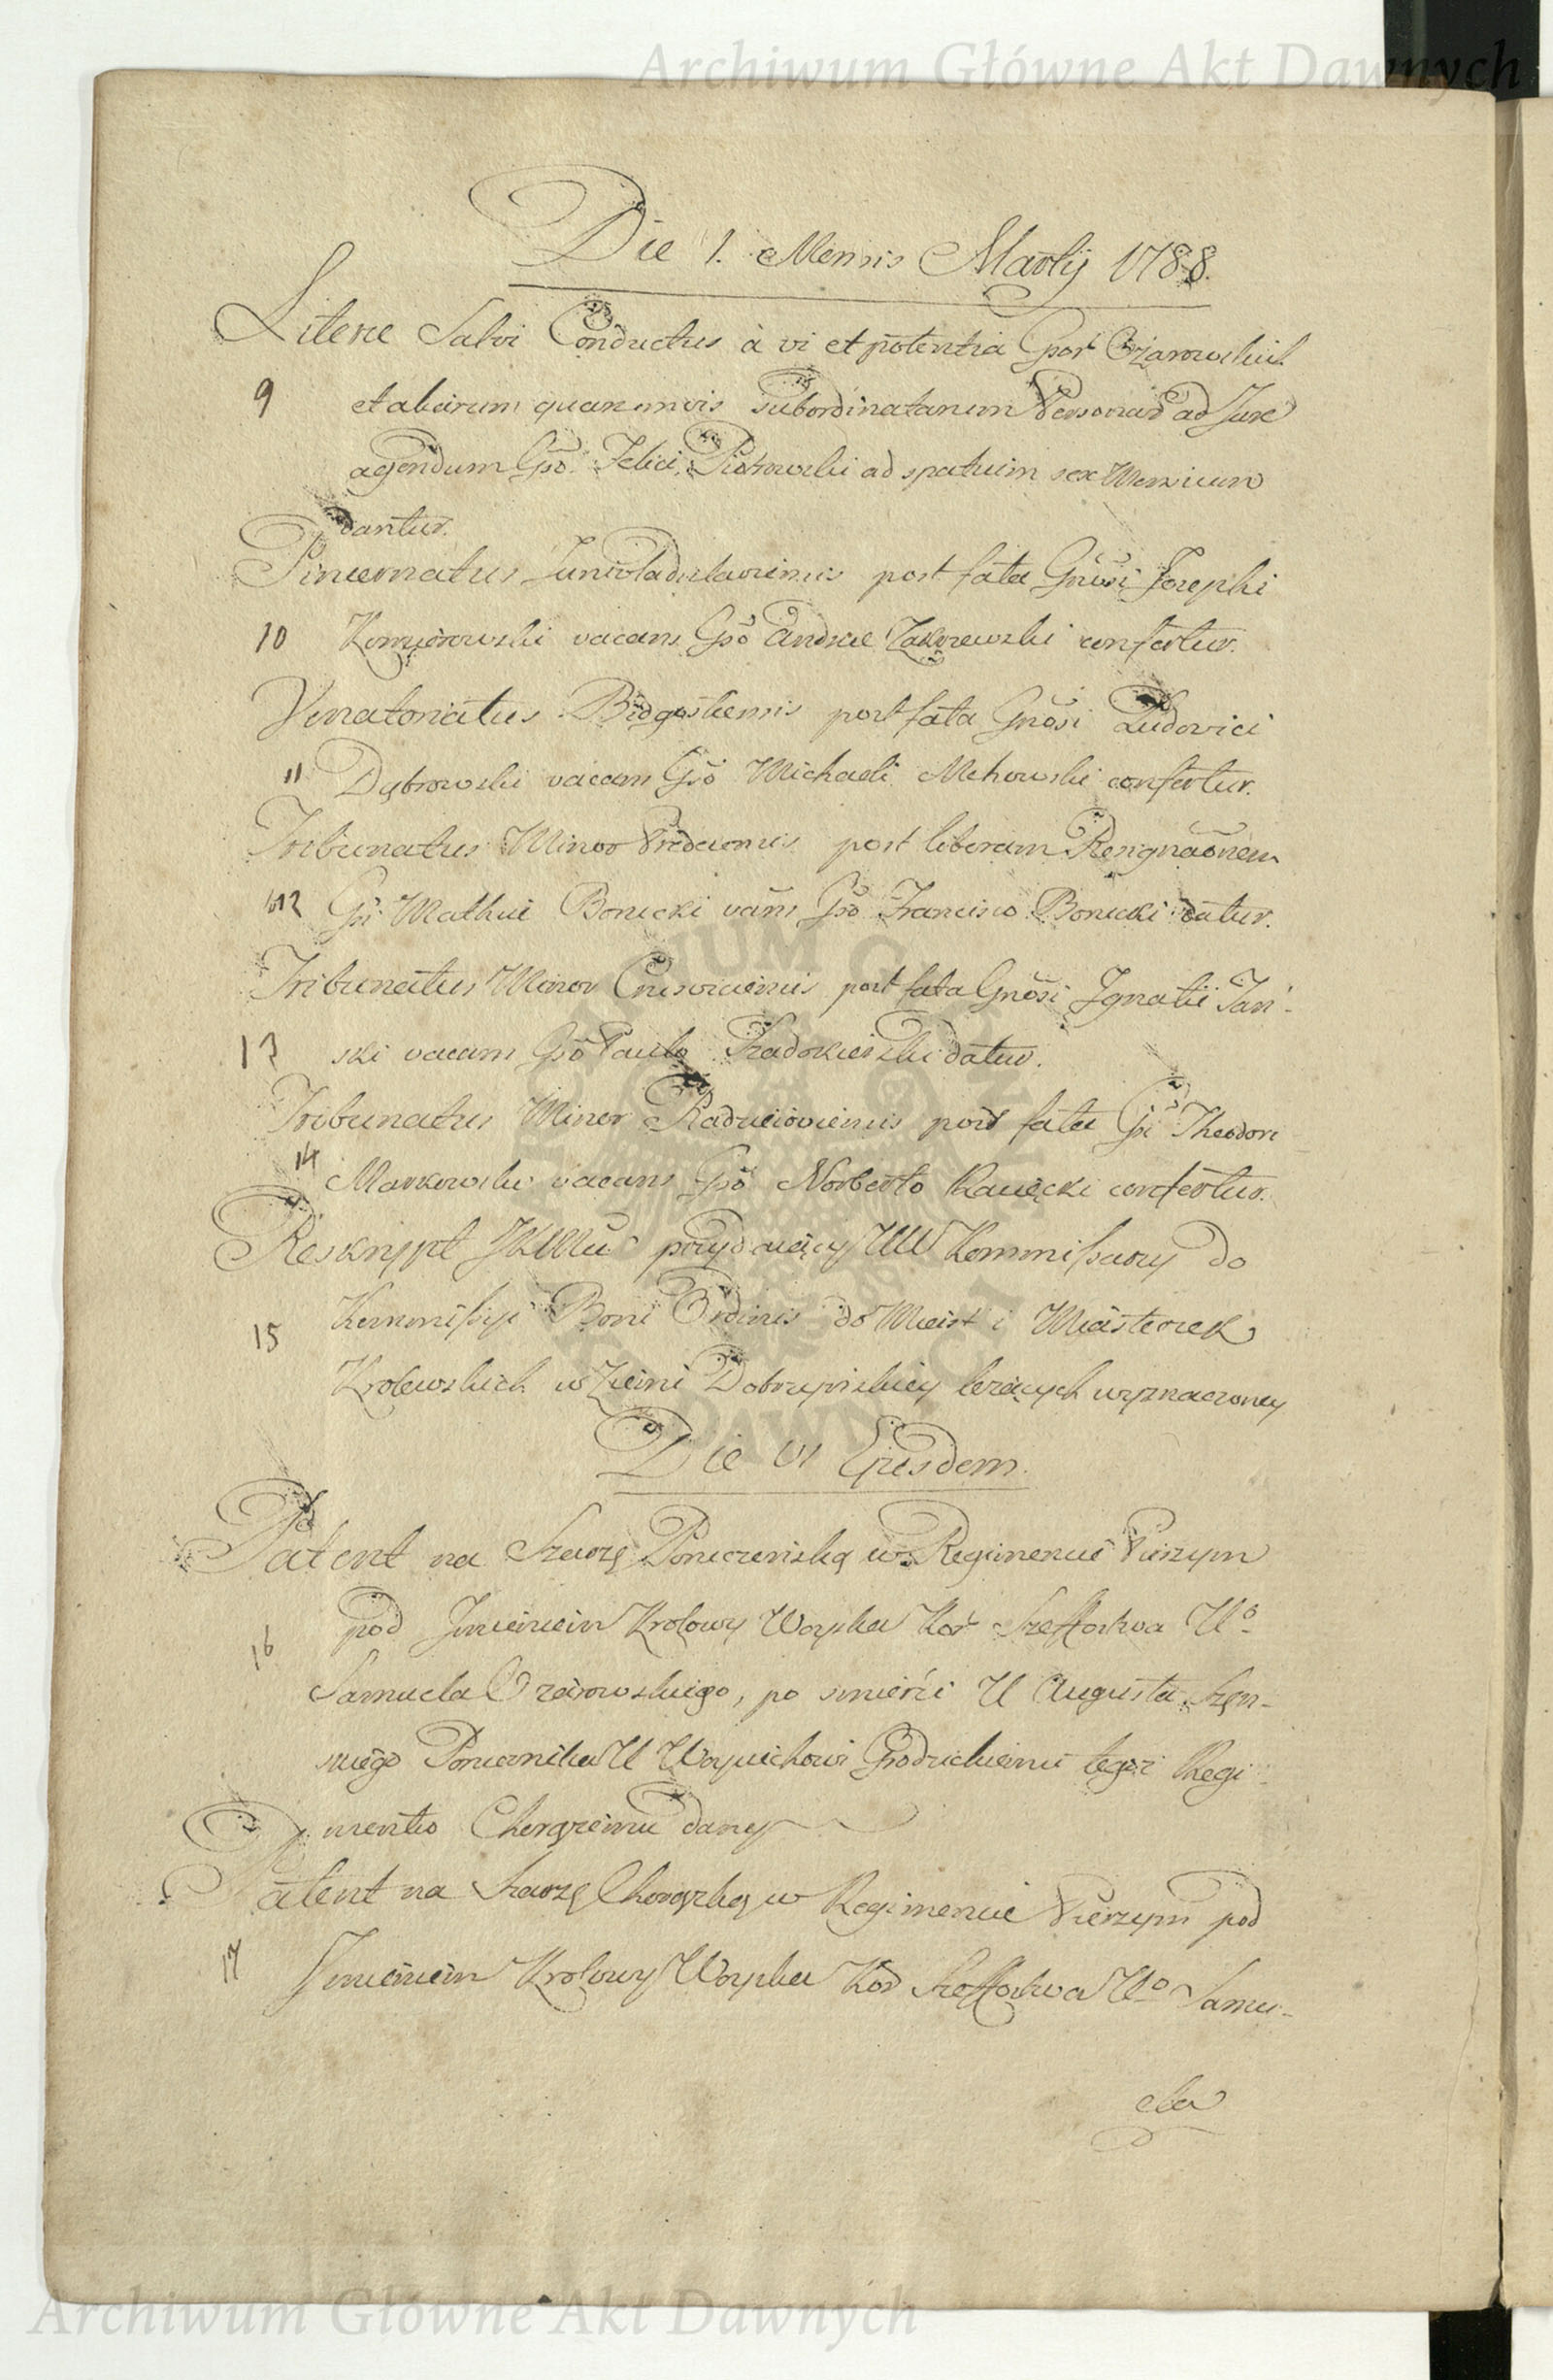 Archiwum Główne Akt Dawnych
Die 1. Mensis Martij 1788.
Literæ Salvi Conductus à vi et potentia
9 et aliarum quarumvis subordinatarum Personar ad Jure
agendum Gso Felici Piotrowski ad spatium sex Mensium
dantur.
Pincernatus Juniwladislaviensis post fata Gnosi Josephi
10 Komierowski vacans Gso Andreæ Zakrzewski confertur.
Venatoriatus Bidgostiensis post fata Gnosi Ludovici
11 Dąbrowski vacans Gso Michaeli confertur.
Tribunatus Minor post liberam Resignãõnem
12 Gsi Mathiæ Boniecki vãns Gso Francisco Boniecki datur.
Tribunatus Minor Crusviciensis post fata Gnosi Ignatii Jan-
13 ski vacans Gso Paulo datur.
Tribunatus Minor Radzieioviensis post fata Gsi Theodori
14 Markowski vacans Gso Norberto confertur.
Reskrypt JKMci przydaiący UU Kommissarzy do
15 Kommissyi Boni Ordinis do Miast i Miasteczek
Krolewskich w Ziemi Dobrzyńskiey leżących wyznaczoney
Die VI Ejusdem.
Patent na Szarżę Poruczeńską w Regimencie Pieszym
16 pod Imieniem Krolowy Woyska Kor Szeffostwa Uo
Samuela Ożarowskiego, po śmierći U Augusta
Porucznika U Woyciechowi Grodzickiemu tegoż Regi-
mentu Chorążemu dany
Patent na Szarżę Chorążską w Regimencie Pieszym pod
17 Imieniem Krolowy Woyska Kor Szeffostwa Uo Samu-
ela
ARCHIWUM GŁÓWNE AKT DAWNYCH
Archiwum Główne Akt Dawnych